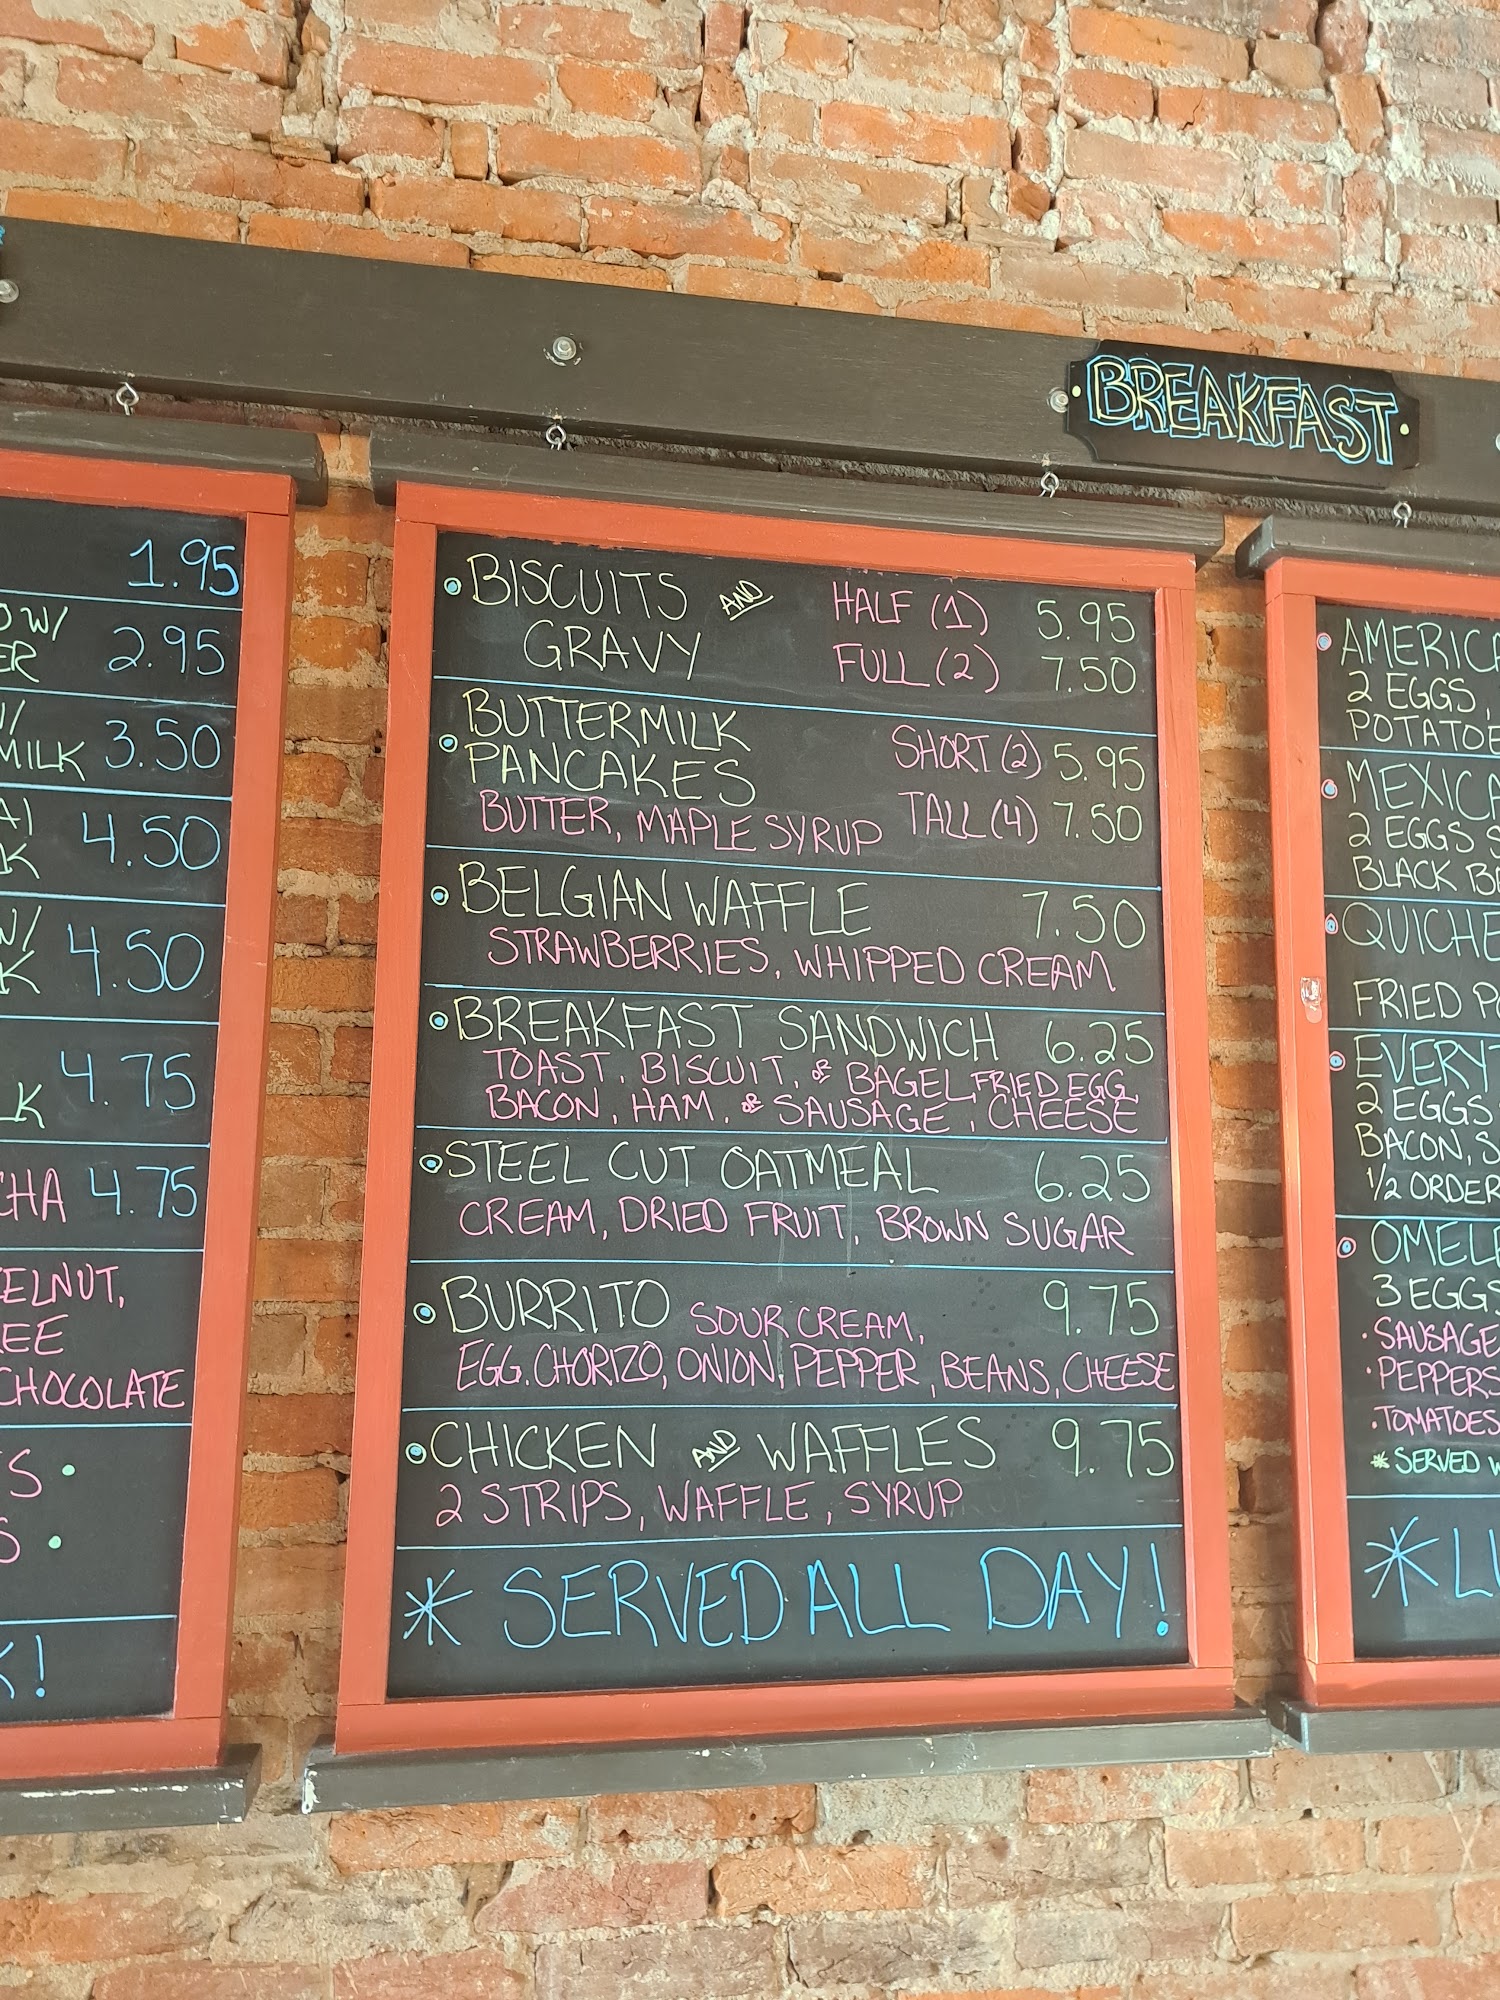 BREAKFAST
1.95
W/
2.95
W/
MILK 3.50
4.50
W/
4.50
4.75
4.75
CHOCOLATE
• BISCUITS AND HALF (1) 5.95
GRAVY FULL (2) 7.50
• BUTTERMILK
PANCAKES SHORT (2) 5.95
BUTTER, MAPLE SYRUP TALL (4) 7.50
• BELGIAN WAFFLE 7.50
STRAWBERRIES, WHIPPED CREAM
• BREAKFAST SANDWICH 6.25
TOAST, BISCUIT, OR BAGEL, FRIED EGG,
BACON, HAM, OR SAUSAGE, CHEESE
• STEEL CUT OATMEAL 6.25
CREAM, DRIED FRUIT, BROWN SUGAR
• BURRITO SOUR CREAM, 9.75
EGG, CHORIZO, ONION, PEPPER, BEANS, CHEESE
• CHICKEN AND WAFFLES 9.75
2 STRIPS, WAFFLE, SYRUP
* SERVED ALL DAY!
2 EGGS,
2 EGGS
BLACK
QUICHE
FRIED
2 EGGS
BACON,
1/2 ORDER
3 EGGS
• SAUSAGE
• PEPPERS
• TOMATOES
* SERVED